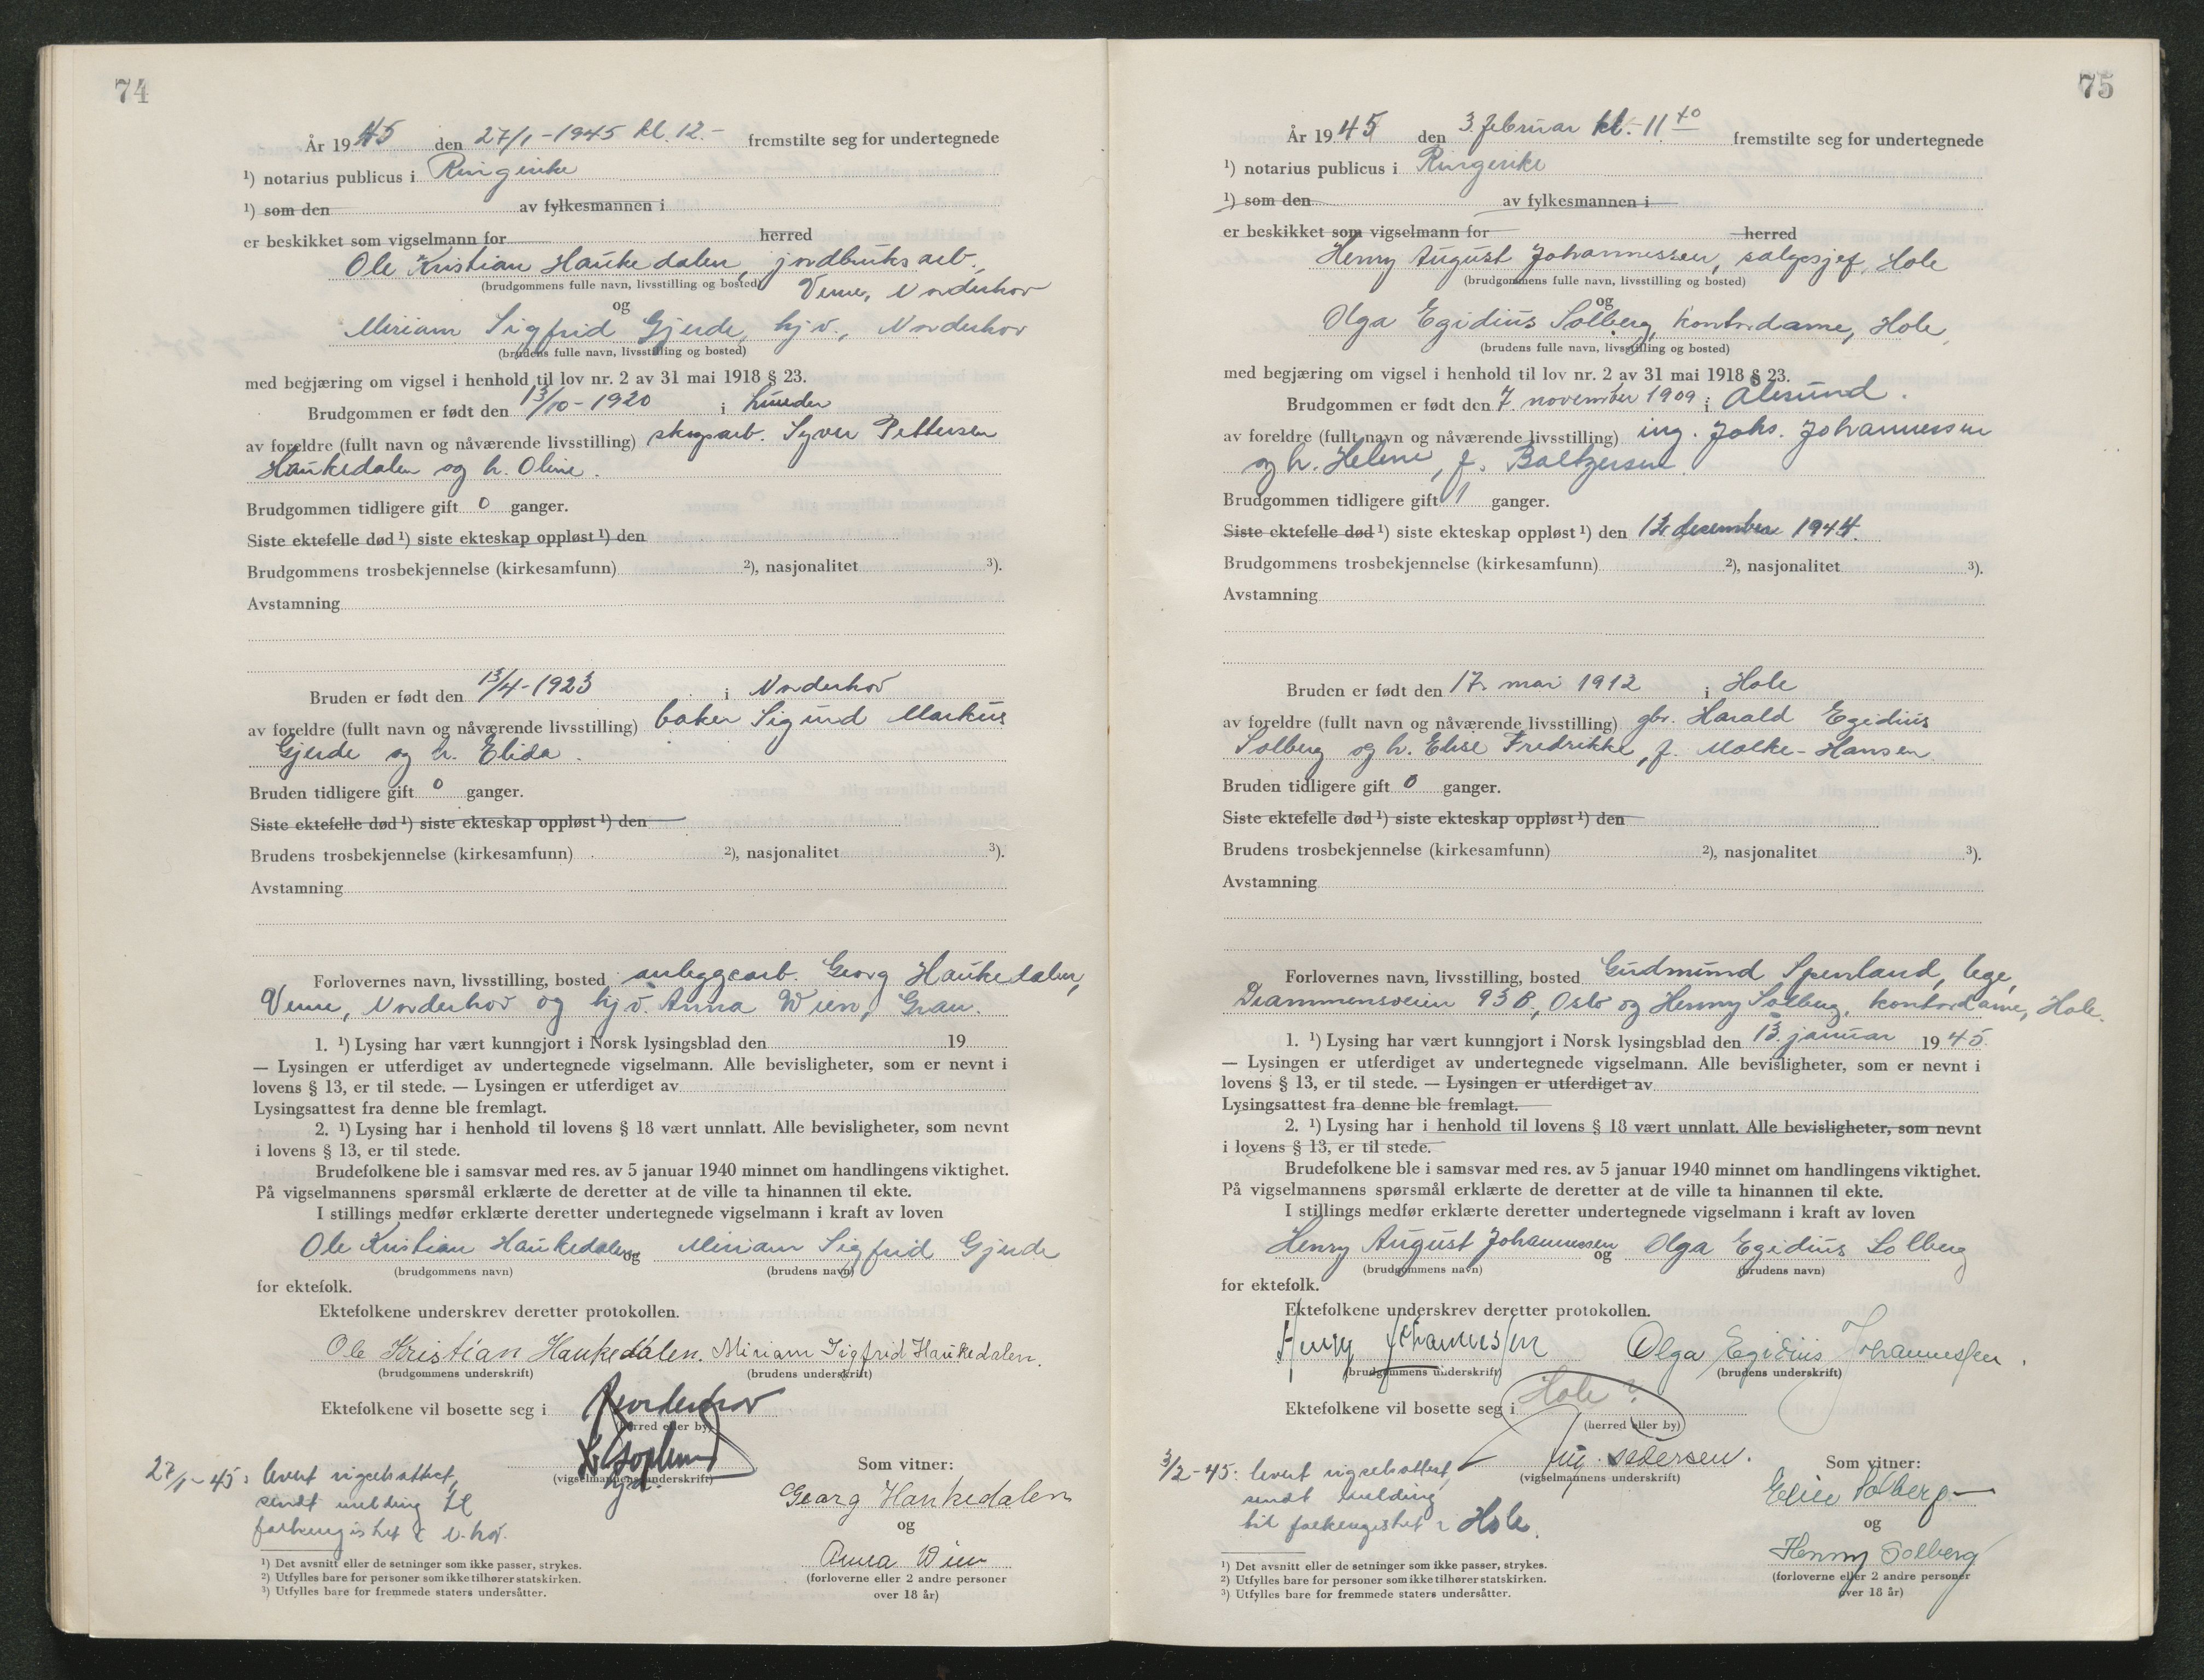 74
År 1945 den 27/1-1945 kl. 12.- fremstilte seg for undertegnede
¹) notarius publicus i Ringerike
¹) som den av fylkesmannen i
er beskikket som vigselmann for herred
Ole Kristian Haukedalen, jordbruksarb.,
(brudgommens fulle navn, livsstilling og bosted) Veme, Norderhov
og
Miriam Sigfrid Gjerde, hj.v., Norderhov
(brudens fulle navn, livsstilling og bosted)
med begjæring om vigsel i henhold til lov nr. 2 av 31 mai 1918 § 23.
Brudgommen er født den 13/10-1920 i Lunder
av foreldre (fullt navn og nåværende livsstilling) skogsarb. Syver Pettersen
Haukedalen og h. Oline.
Brudgommen tidligere gift 0 ganger.
Siste ektefelle død ¹) siste ekteskap oppløst ¹) den
Brudgommens trosbekjennelse (kirkesamfunn) ²), nasjonalitet ³).
Avstamning
Bruden er født den 13/4-1923 i Norderhov
av foreldre (fullt navn og nåværende livsstilling) baker Sigurd Markus
Gjerde og h. Elida.
Bruden tidligere gift 0 ganger.
Siste ektefelle død ¹) siste ekteskap oppløst ¹) den
Brudens trosbekjennelse (kirkesamfunn) ²), nasjonalitet ³).
Avstamning
Forlovernes navn, livsstilling, bosted anleggsarb. Georg Haukedalen,
Veme, Norderhov og hj.v. Anna Wien, Gran.
1. ¹) Lysing har vært kunngjort i Norsk lysingsblad den 19
— Lysingen er utferdiget av undertegnede vigselmann. Alle bevisligheter, som er nevnt i
lovens § 13, er til stede. — Lysingen er utferdiget av
Lysingsattest fra denne ble fremlagt.
2. ¹) Lysing har i henhold til lovens § 18 vært unnlatt. Alle bevisligheter, som nevnt
i lovens § 13, er til stede.
Brudefolkene ble i samsvar med res. av 5 januar 1940 minnet om handlingens viktighet.
På vigselmannens spørsmål erklærte de deretter at de ville ta hinannen til ekte.
I stillings medfør erklærte deretter undertegnede vigselmann i kraft av loven
Ole Kristian Haukedalen og Miriam Sigfrid Gjerde
(brudgommens navn) (brudens navn)
for ektefolk.
Ektefolkene underskrev deretter protokollen.
Ole Kristian Haukedalen. Miriam Sigfrid Haukedalen.
(brudgommens underskrift) (brudens underskrift)
Ektefolkene vil bosette seg i Norderhov
(herred eller by)
(vigselmannens underskrift)
27/1-45: levert vigselsattest,
sendt melding til
folkeregistret i N.hov.
Som vitner:
Georg Haukedalen
og
Anna Wien
(forloverne eller 2 andre personer
over 18 år)
¹) Det avsnitt eller de setninger som ikke passer, strykes.
²) Utfylles bare for personer som ikke tilhører statskirken.
³) Utfylles bare for fremmede staters undersåtter.
75
År 1945 den 3. februar kl. 11⁴⁰ fremstilte seg for undertegnede
¹) notarius publicus i Ringerike
¹) som den av fylkesmannen i
er beskikket som vigselmann for herred
Henry August Johannessen, salgssjef, Hole
(brudgommens fulle navn, livsstilling og bosted)
og
Olga Egidius Solberg, kontordame, Hole,
(brudens fulle navn, livsstilling og bosted)
med begjæring om vigsel i henhold til lov nr. 2 av 31 mai 1918 § 23.
Brudgommen er født den 7. november 1909 i Ålesund.
av foreldre (fullt navn og nåværende livsstilling) ing. Johs. Johannessen
og h. Helene, f. Baltzersen
Brudgommen tidligere gift 1 ganger.
Siste ektefelle død ¹) siste ekteskap oppløst ¹) den desember 1944.
Brudgommens trosbekjennelse (kirkesamfunn) ²), nasjonalitet ³).
Avstamning
Bruden er født den 17. mai 1912 i Hole
av foreldre (fullt navn og nåværende livsstilling) gbr. Harald Egidius
Solberg og h. Elise Fredrikke, f. Molke-Hansen.
Bruden tidligere gift 0 ganger.
Siste ektefelle død ¹) siste ekteskap oppløst ¹) den
Brudens trosbekjennelse (kirkesamfunn) ²), nasjonalitet ³).
Avstamning
Forlovernes navn, livsstilling, bosted Gudmund Spenland, lege,
Drammensveien 93B, Oslo og Henny Solberg, kontordame, Hole.
1. ¹) Lysing har vært kunngjort i Norsk lysingsblad den 13. januar 1945.
— Lysingen er utferdiget av undertegnede vigselmann. Alle bevisligheter, som er nevnt i
lovens § 13, er til stede. — Lysingen er utferdiget av
Lysingsattest fra denne ble fremlagt.
2. ¹) Lysing har i henhold til lovens § 18 vært unnlatt. Alle bevisligheter, som nevnt
i lovens § 13, er til stede.
Brudefolkene ble i samsvar med res. av 5 januar 1940 minnet om handlingens viktighet.
På vigselmannens spørsmål erklærte de deretter at de ville ta hinannen til ekte.
I stillings medfør erklærte deretter undertegnede vigselmann i kraft av loven
Henry August Johannessen og Olga Egidius Solberg
(brudgommens navn) (brudens navn)
for ektefolk.
Ektefolkene underskrev deretter protokollen.
Henry Johannessen Olga Egidius Johannessen.
(brudgommens underskrift) (brudens underskrift)
Ektefolkene vil bosette seg i Hole?
(herred eller by)
Pedersen.
(vigselmannens underskrift)
3/2-45: levert vigselsattest,
sendt melding
til folkeregistret i Hole.
Som vitner:
Elise Solberg
og
Henny Solberg
(forloverne eller 2 andre personer
over 18 år)
¹) Det avsnitt eller de setninger som ikke passer, strykes.
²) Utfylles bare for personer som ikke tilhører statskirken.
³) Utfylles bare for fremmede staters undersåtter.